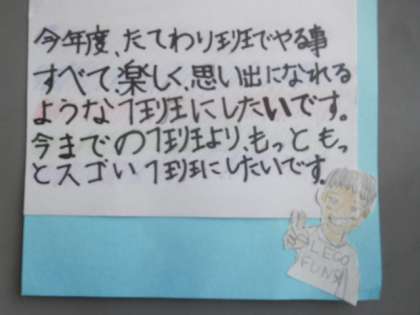 今年度、たてわり班でやる事
すべて楽しく、思い出になれる
ような1班にしたいです。
今までの1班より、もっともっ
とスゴい1班にしたいです。
LEGO
FUNS